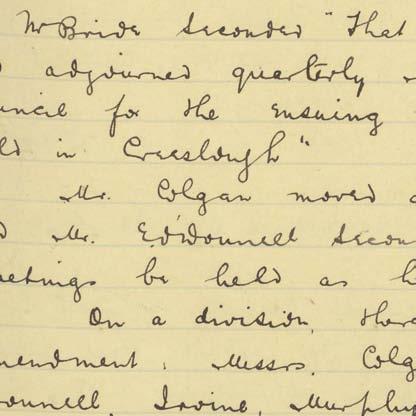 Mr Bride seconded "That
adjourned quarterly
uncil for the ensuing
ld in Creeslough"
Mr. Colgan moved a
d Mr. E. O'Donnell secon
eetings be held as h
On a division, ther
mendment: Messrs. Colg
onnell, Irvine, Murphy